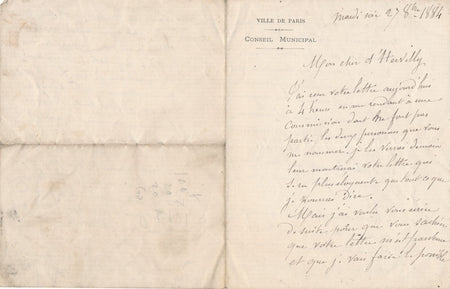 VILLE DE PARIS
CONSEIL MUNICIPAL
mardi soir 27 8bre 1884
Mon cher d'Hervilly
J'ai reçu votre lettre aujourd'hui
à 4 heures en me rendant à une
commission dont ne font pas
partie les deux personnes que vous
me nommez. je les verrai demain
leur montrerai votre lettre qui
sera plus éloquente que tout ce que
je pourrais dire.
Mais j'ai voulu vous écrire
de suite pour que vous sachiez
que votre lettre m'est parvenue
et que je vais faire le possible